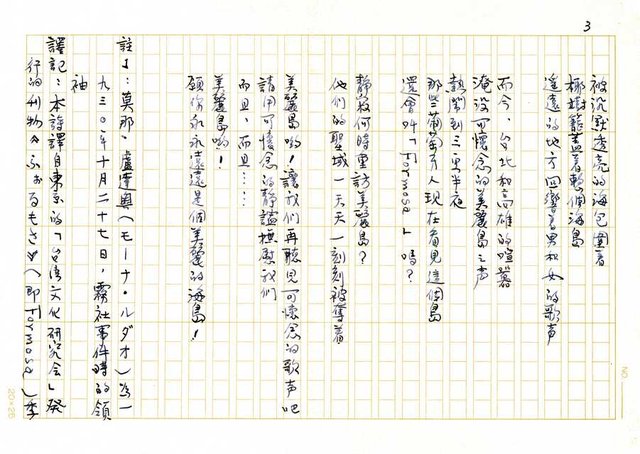 3
被沉默透亮的海包圍著
椰樹籠蓋著整個海島
遙遠的地方回響著男和女的歌声
而今,台北和高雄的喧囂
淹沒可懷念的美麗島之声
熱鬧到三更半夜
那些葡萄牙人現在看見這個島
還會叫「Formosa」嗎?
靜寂何時重訪美麗島?
他們的聖域一天天一刻刻被奪着
美麗島喲!讓我們再聽見可懷念的歌声吧
請用可懷念的靜謐撫慰我們
而且,而且……
美麗島喲!
願你永永遠遠是個美麗的海島!
註1:莫那‧盧達奧(モーナ・ルダオ)為一
九三〇年十月二十七日,霧社事件時的領
袖
譯記:本詩譯自東京的「台湾文化研究会」發
行的刊物《ふおるもさ》(即Formosa)季
20×25
NO.